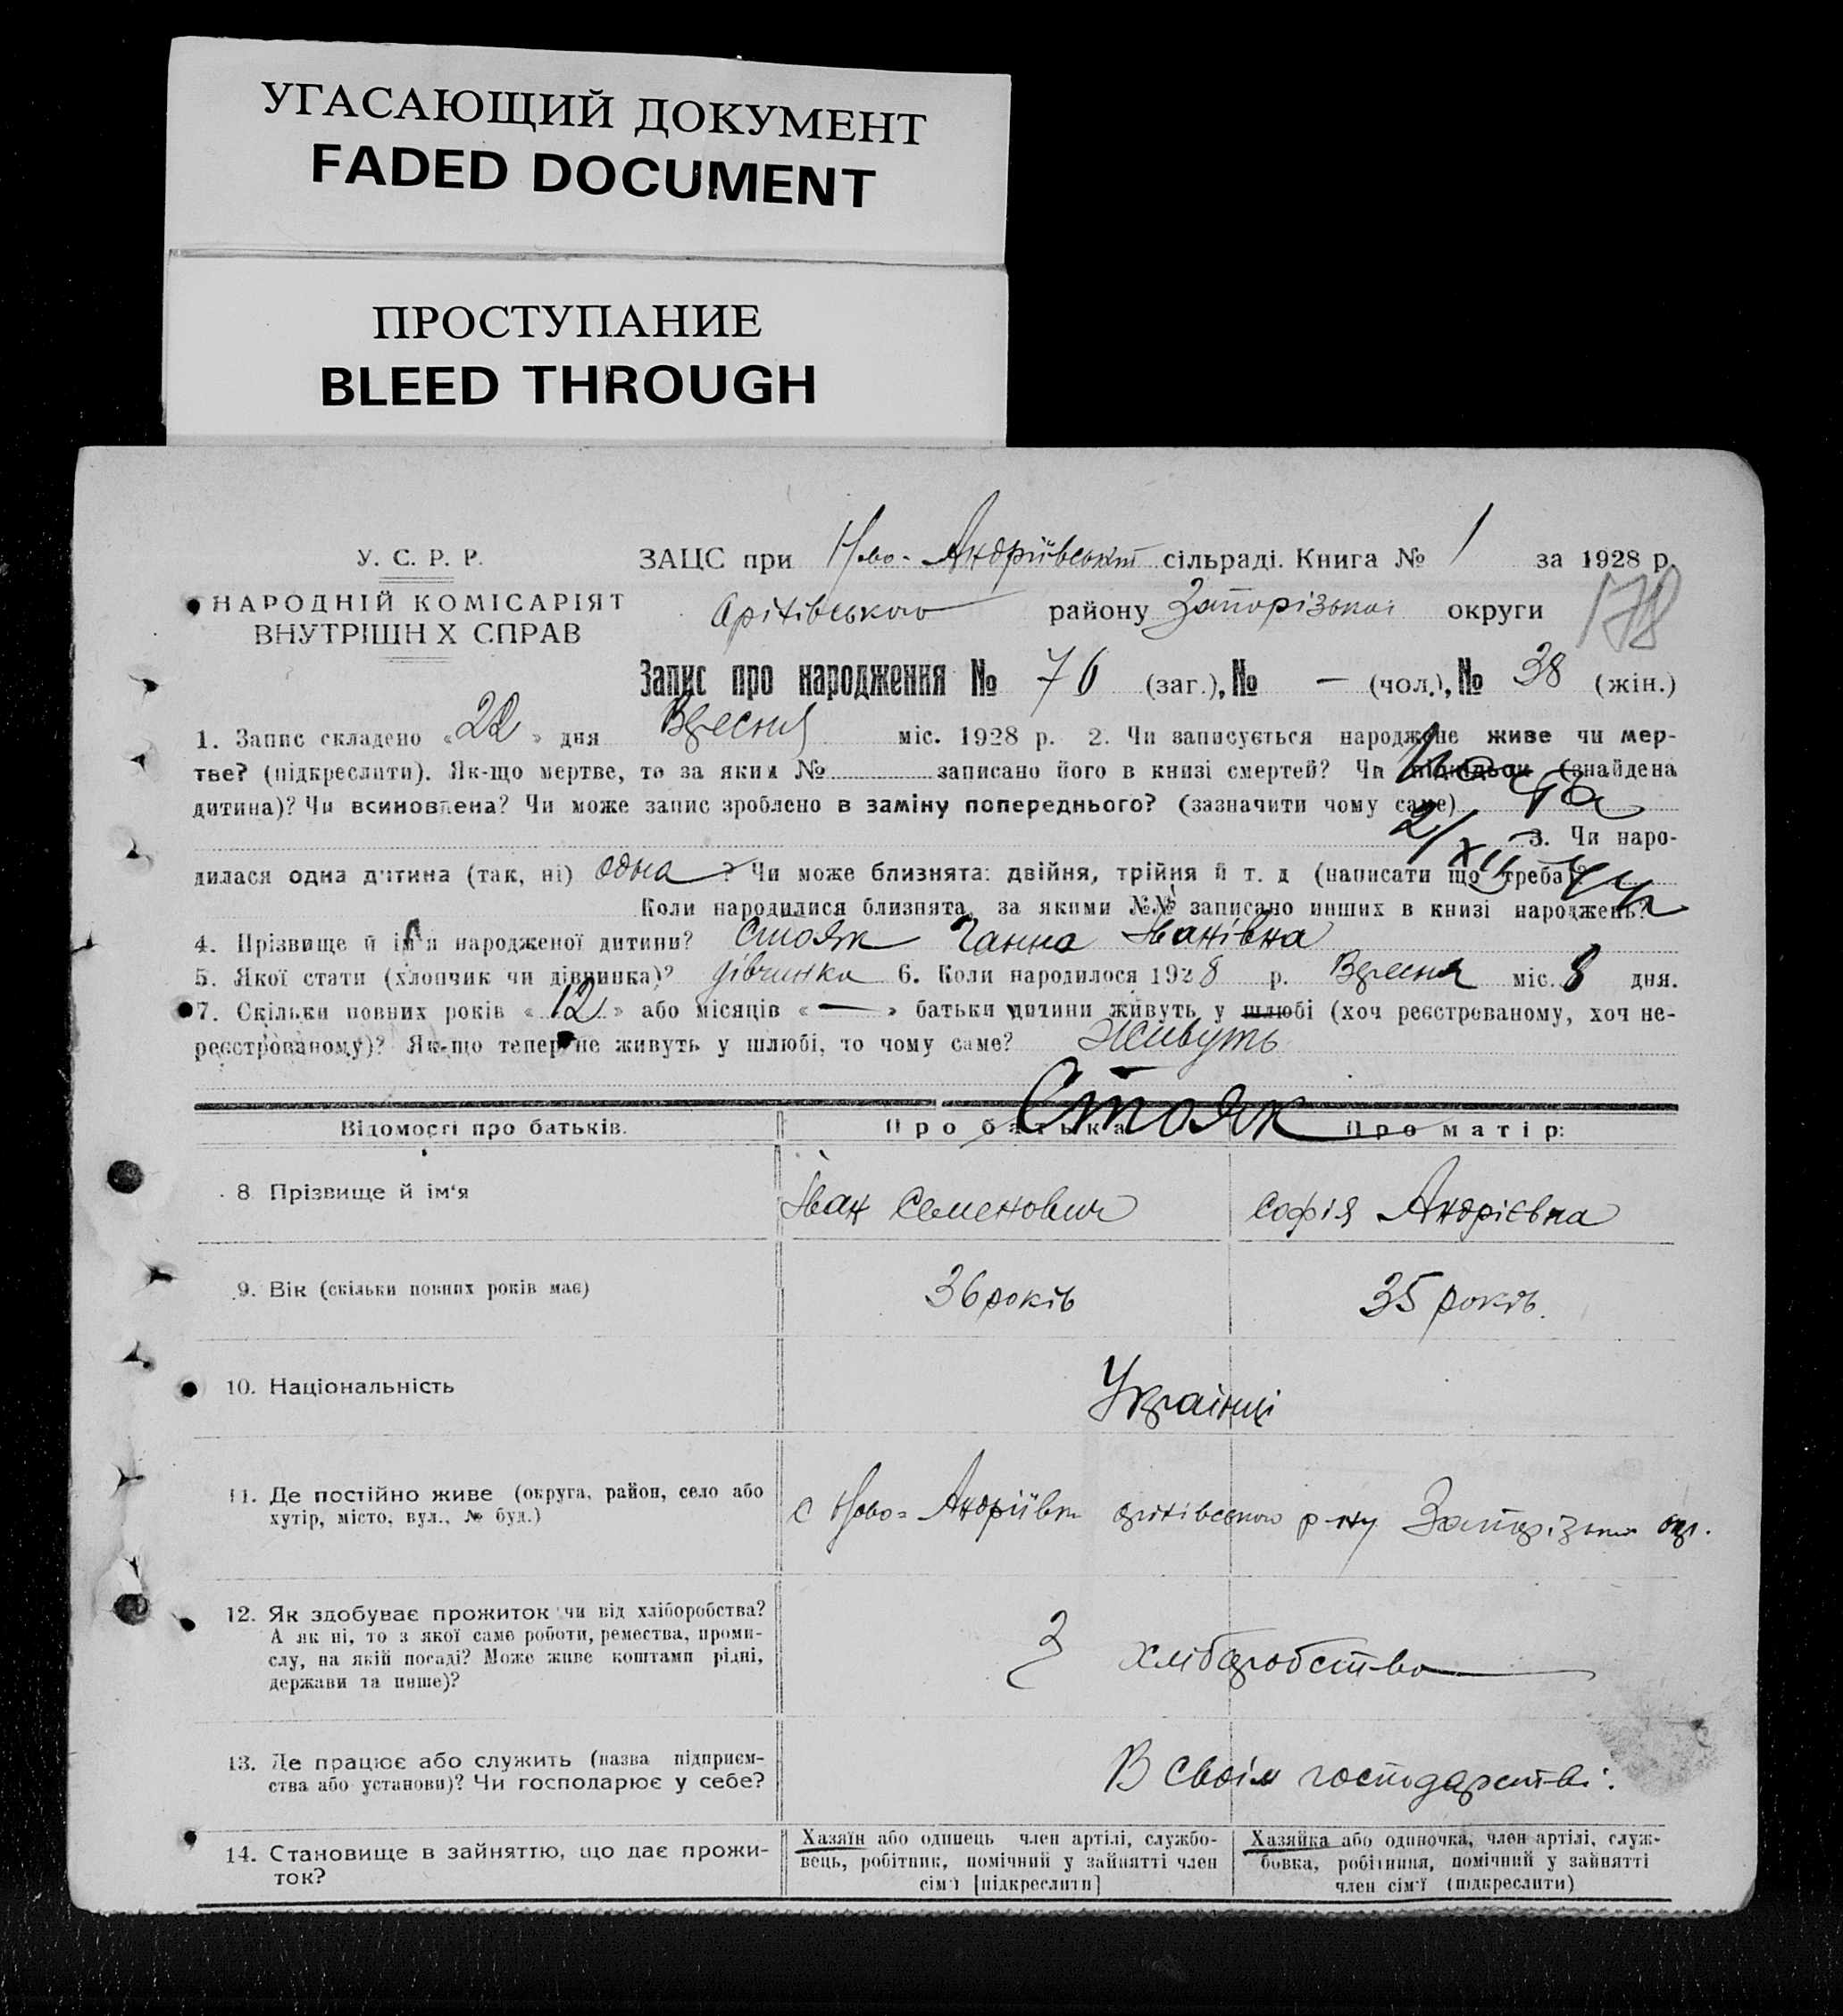 УГАСАЮЩИЙ ДОКУМЕНТ
FADED DOCUMENT
ПРОСТУПАНИЕ
BLEED THROUGH
У. С. Р. Р.
НАРОДНІЙ КОМІСАРІЯТ
ВНУТРІШН Х СПРАВ
ЗАЦС при Ново-Андріївській сільраді. Книга № 1 за 1928 р.
Оріхівського району Запорізької округи
178
Запис про народження № 76 (заг.), № — (чол.), № 38 (жін.)
1. Запис складено «22» дня Вересня міс. 1928 р. 2. Чи записується народжене живе чи мер-
тве? (підкреслити). Як-що мертве, то за яким № записано його в книзі смертей? Чи підкідьок (знайдена
дитина)? Чи всиновлена? Чи може запис зроблено в заміну попереднього? (зазначити чому саме)
3. Чи наро-
дилася одна дитина (так, ні) одна ? Чи може близнята: двійня, трійня й т. д (написати що треба)?
Коли народилися близнята, за якими №№ записано инших в книзі народжень?
4. Прізвище й ім'я народженої дитини? Стояк Ганна Іванівна
5. Якої стати (хлопчик чи дівчинка)? дівчинка 6. Коли народилося 1928 р. Вересня міс. 8 дня.
7. Скільки повних років «12» або місяців «—» батьки дитини живуть у шлюбі (хоч реєстрованому, хоч не-
реєстрованому)? Як-що тепер не живуть у шлюбі, то чому саме? Живуть
Стояк
Відомості про батьків. Про батька Про матір:
8 Прізвище й ім'я Іван Семенович Софія Андрієвна
9. Вік (скільки повних років має) 36 років 35 років.
10. Національність Українці
11. Де постійно живе (округа, район, село або
хутір, місто, вул., № буд.)
с Ново-Андріївки Оріхівського р-ну Запорізької окр.
12. Як здобуває прожиток чи від хліборобства?
А як ні, то з якої саме роботи, ремества, проми-
слу, на якій посаді? Може живе коштами рідні,
держави та инше)?
З хліборобства
13. Де працює або служить (назва підприєм-
ства або установи)? Чи господарює у себе?
В своїм господарстві.
14. Становище в зайняттю, що дає прожи-
ток?
Хазяїн або одинець член артілі, службо-
вець, робітник, помічний у зайнятті член
сім'ї [підкреслити]
Хазяйка або одиночка, член артілі, служ-
бовка, робітниця, помічний у зайнятті
член сім'ї (підкреслити)